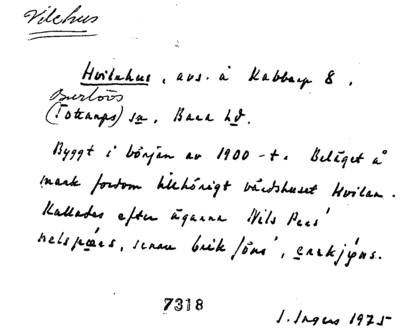 Vilehus
Hvilehus, avs. å Kabbarp 8,
Burlövs
(Tottarps) sn, Bara hd.
Byggt i början av 1900-t. Beläget å
mark fordom tillhörigt värdshuset Hvilan.
Kallades efter ägarna Nils Pers'
nels pærs, senare Erik Jöns',
7318
I. Ingers 1975